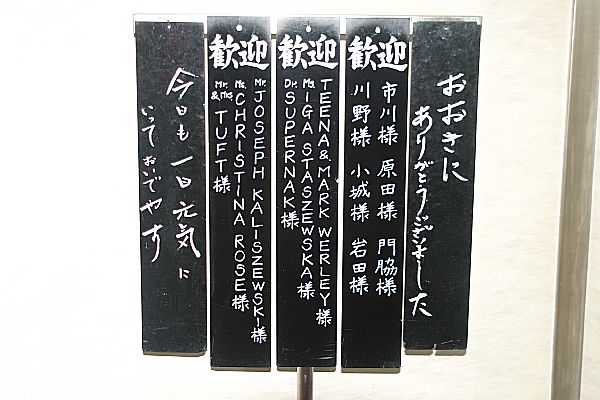 おおきに
ありがとうございました
歓迎
市川様 原田様 門脇様
川野様 小城様 岩田様
歓迎
TEENA & MARK WERLEY様
Ms. IGA STASZEWSKA様
Dr. SUPERNAK様
歓迎
Mr. JOSEPH KALISZEWSKI様
Ms. CHRISTINA ROSE様
Mr. & Mrs TUFT様
今日も一日元気に
いっておいでやす